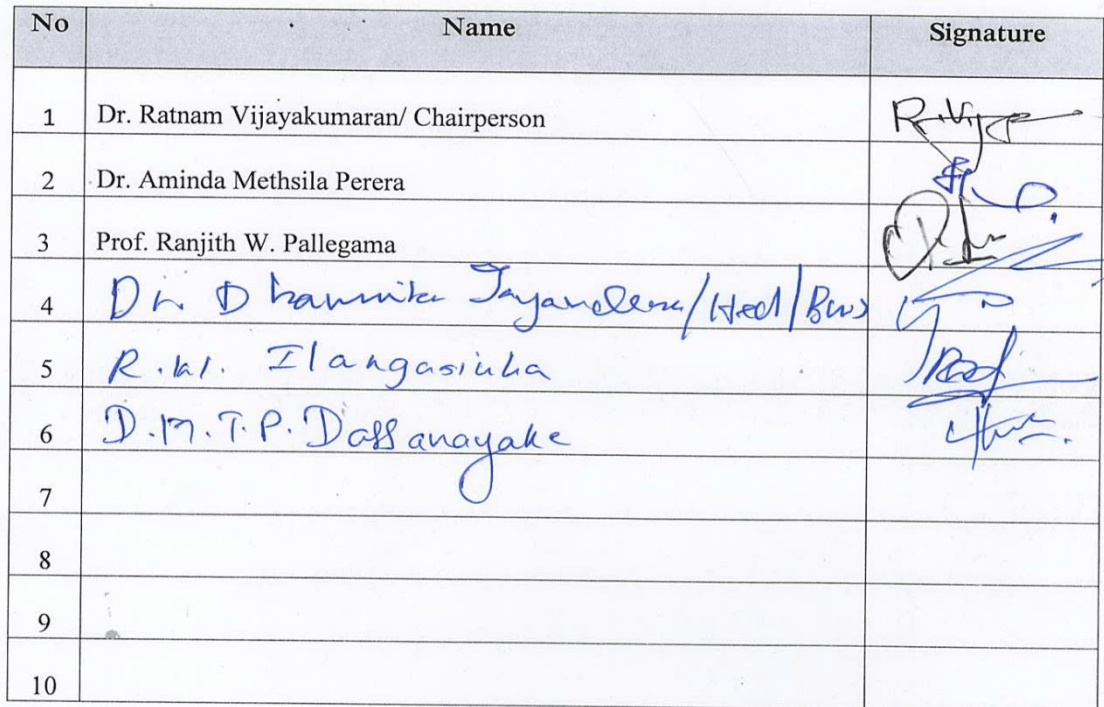 No Name Signature
1 Dr. Ratnam Vijayakumaran/ Chairperson
2 Dr. Aminda Methsila Perera
3 Prof. Ranjith W. Pallegama
4 Dr. Dhammika /Hed/
5 R.W. Ilangasinha
6 D.M.T.P. Dassanayake
7
8
9
10